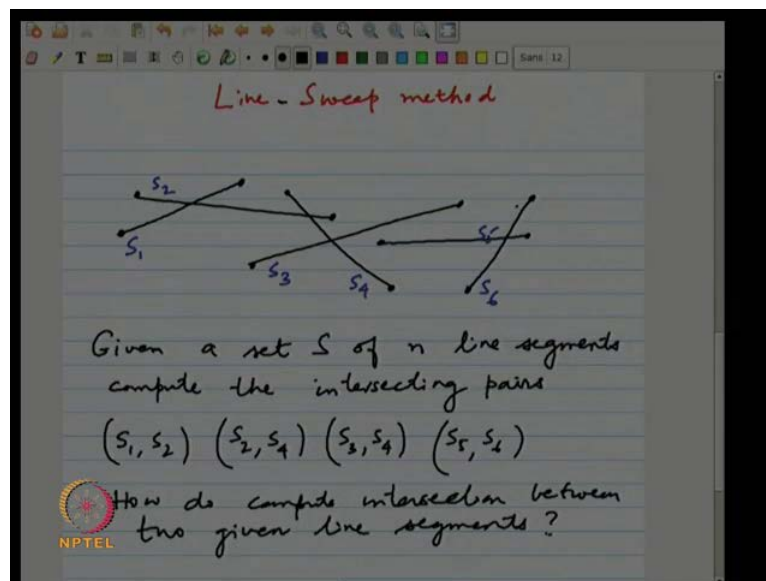 T
Sans 12
Line-Sweep method
S2
S1
S3
S4
S5
S6
Given a set S of n line segments
compute the intersecting pairs
(S1, S2) (S2, S4) (S3, S4) (S5, S6)
How do compute intersection between
two given line segments?
NPTEL